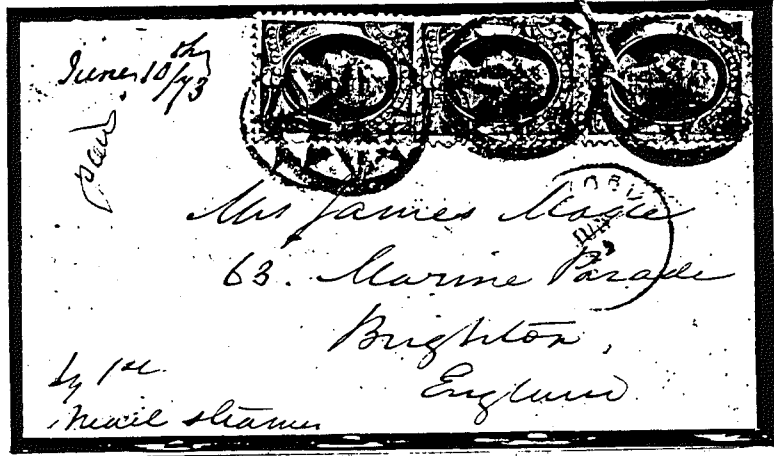 June 10th/73
paid
Mrs James Made
63. Marine Parade
Brighton,
England
by 1st
Mail steamer